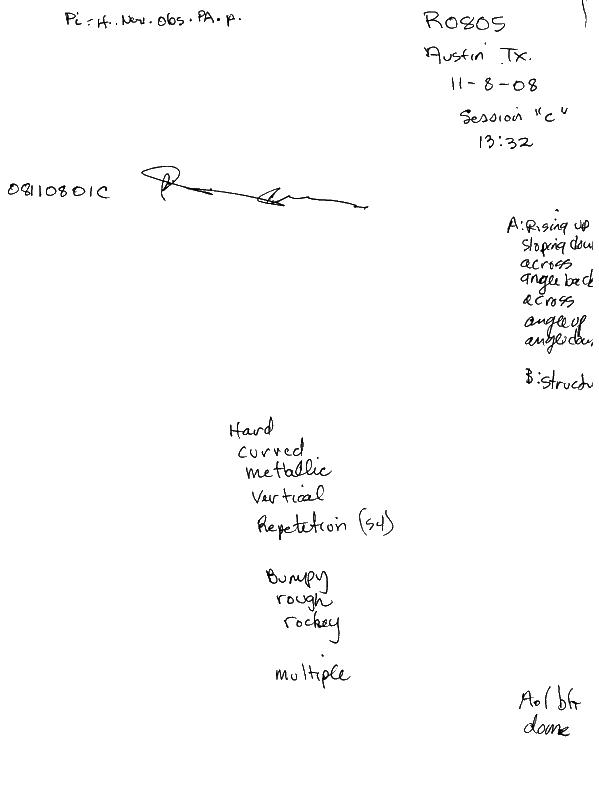 Pi: H. Nov. Obs. PA. p.
R0805
Austin Tx.
11-8-08
Session "c"
13:32
08110801C
A: Rising up
sloping dow
across
angle back
across
angle up
angle dow
B: structu
Hard
curved
metallic
Vertical
Repetetion (s4)
Bumpy
rough
rockey
multiple
dome